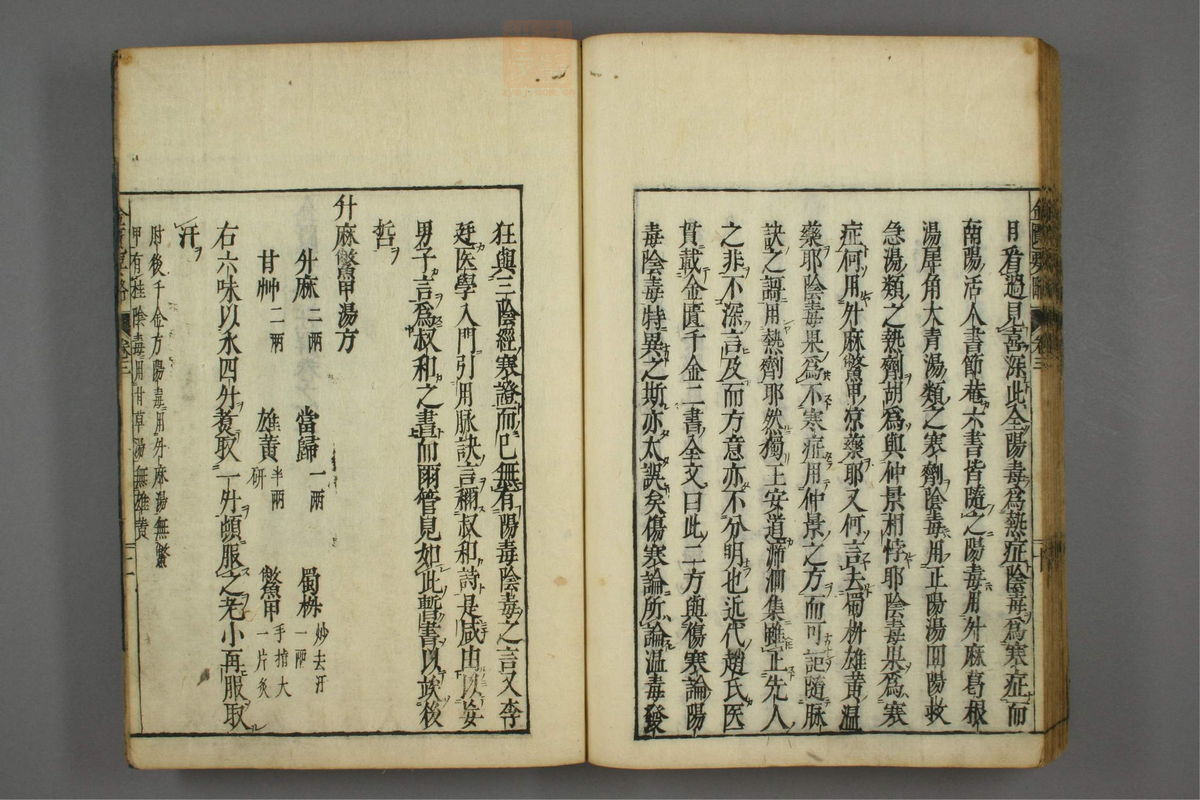 目看過見喜深此全陽毒爲熱症陰毒爲寒症而
南陽活人書節菴六書皆隨之陽毒用升麻葛根
湯犀角大青湯類之寒劑陰毒用正陽湯囬陽救
急湯類之熱劑胡爲與仲景相悖耶陰毒果爲寒
症何用升麻鱉甲凉藥耶又何言去蜀椒雄黄温
藥耶陰毒果爲不寒症用仲景之方而可訑隨脉
訣之謌用熱劑耶然獨王安道泝洄集雖正先人
之非不深言及而方意亦不分明也近代趙氏医
貫載金匱千金二書全文曰此二方與傷寒論陽
毒陰毒特異之斯亦太誤矣傷寒論所論温毒發
狂與三陰經寒證而已無有陽毒陰毒之言又李
梴医學入門引用脉訣言稱叔和詩是咸由以妄
男子言爲叔和之書而爾管見如此暫書以竢後
哲
升麻鱉甲湯方
升麻二兩 當歸一兩 蜀椒炒去汗一兩
甘艸二兩 雄黄半兩研 鱉甲手指大一片炙
右六味以水四升煑取一升頓服之老小再服取
汗
肘後千金方陽毒用升麻湯無鱉
甲有桂陰毒用甘草湯無雄黄